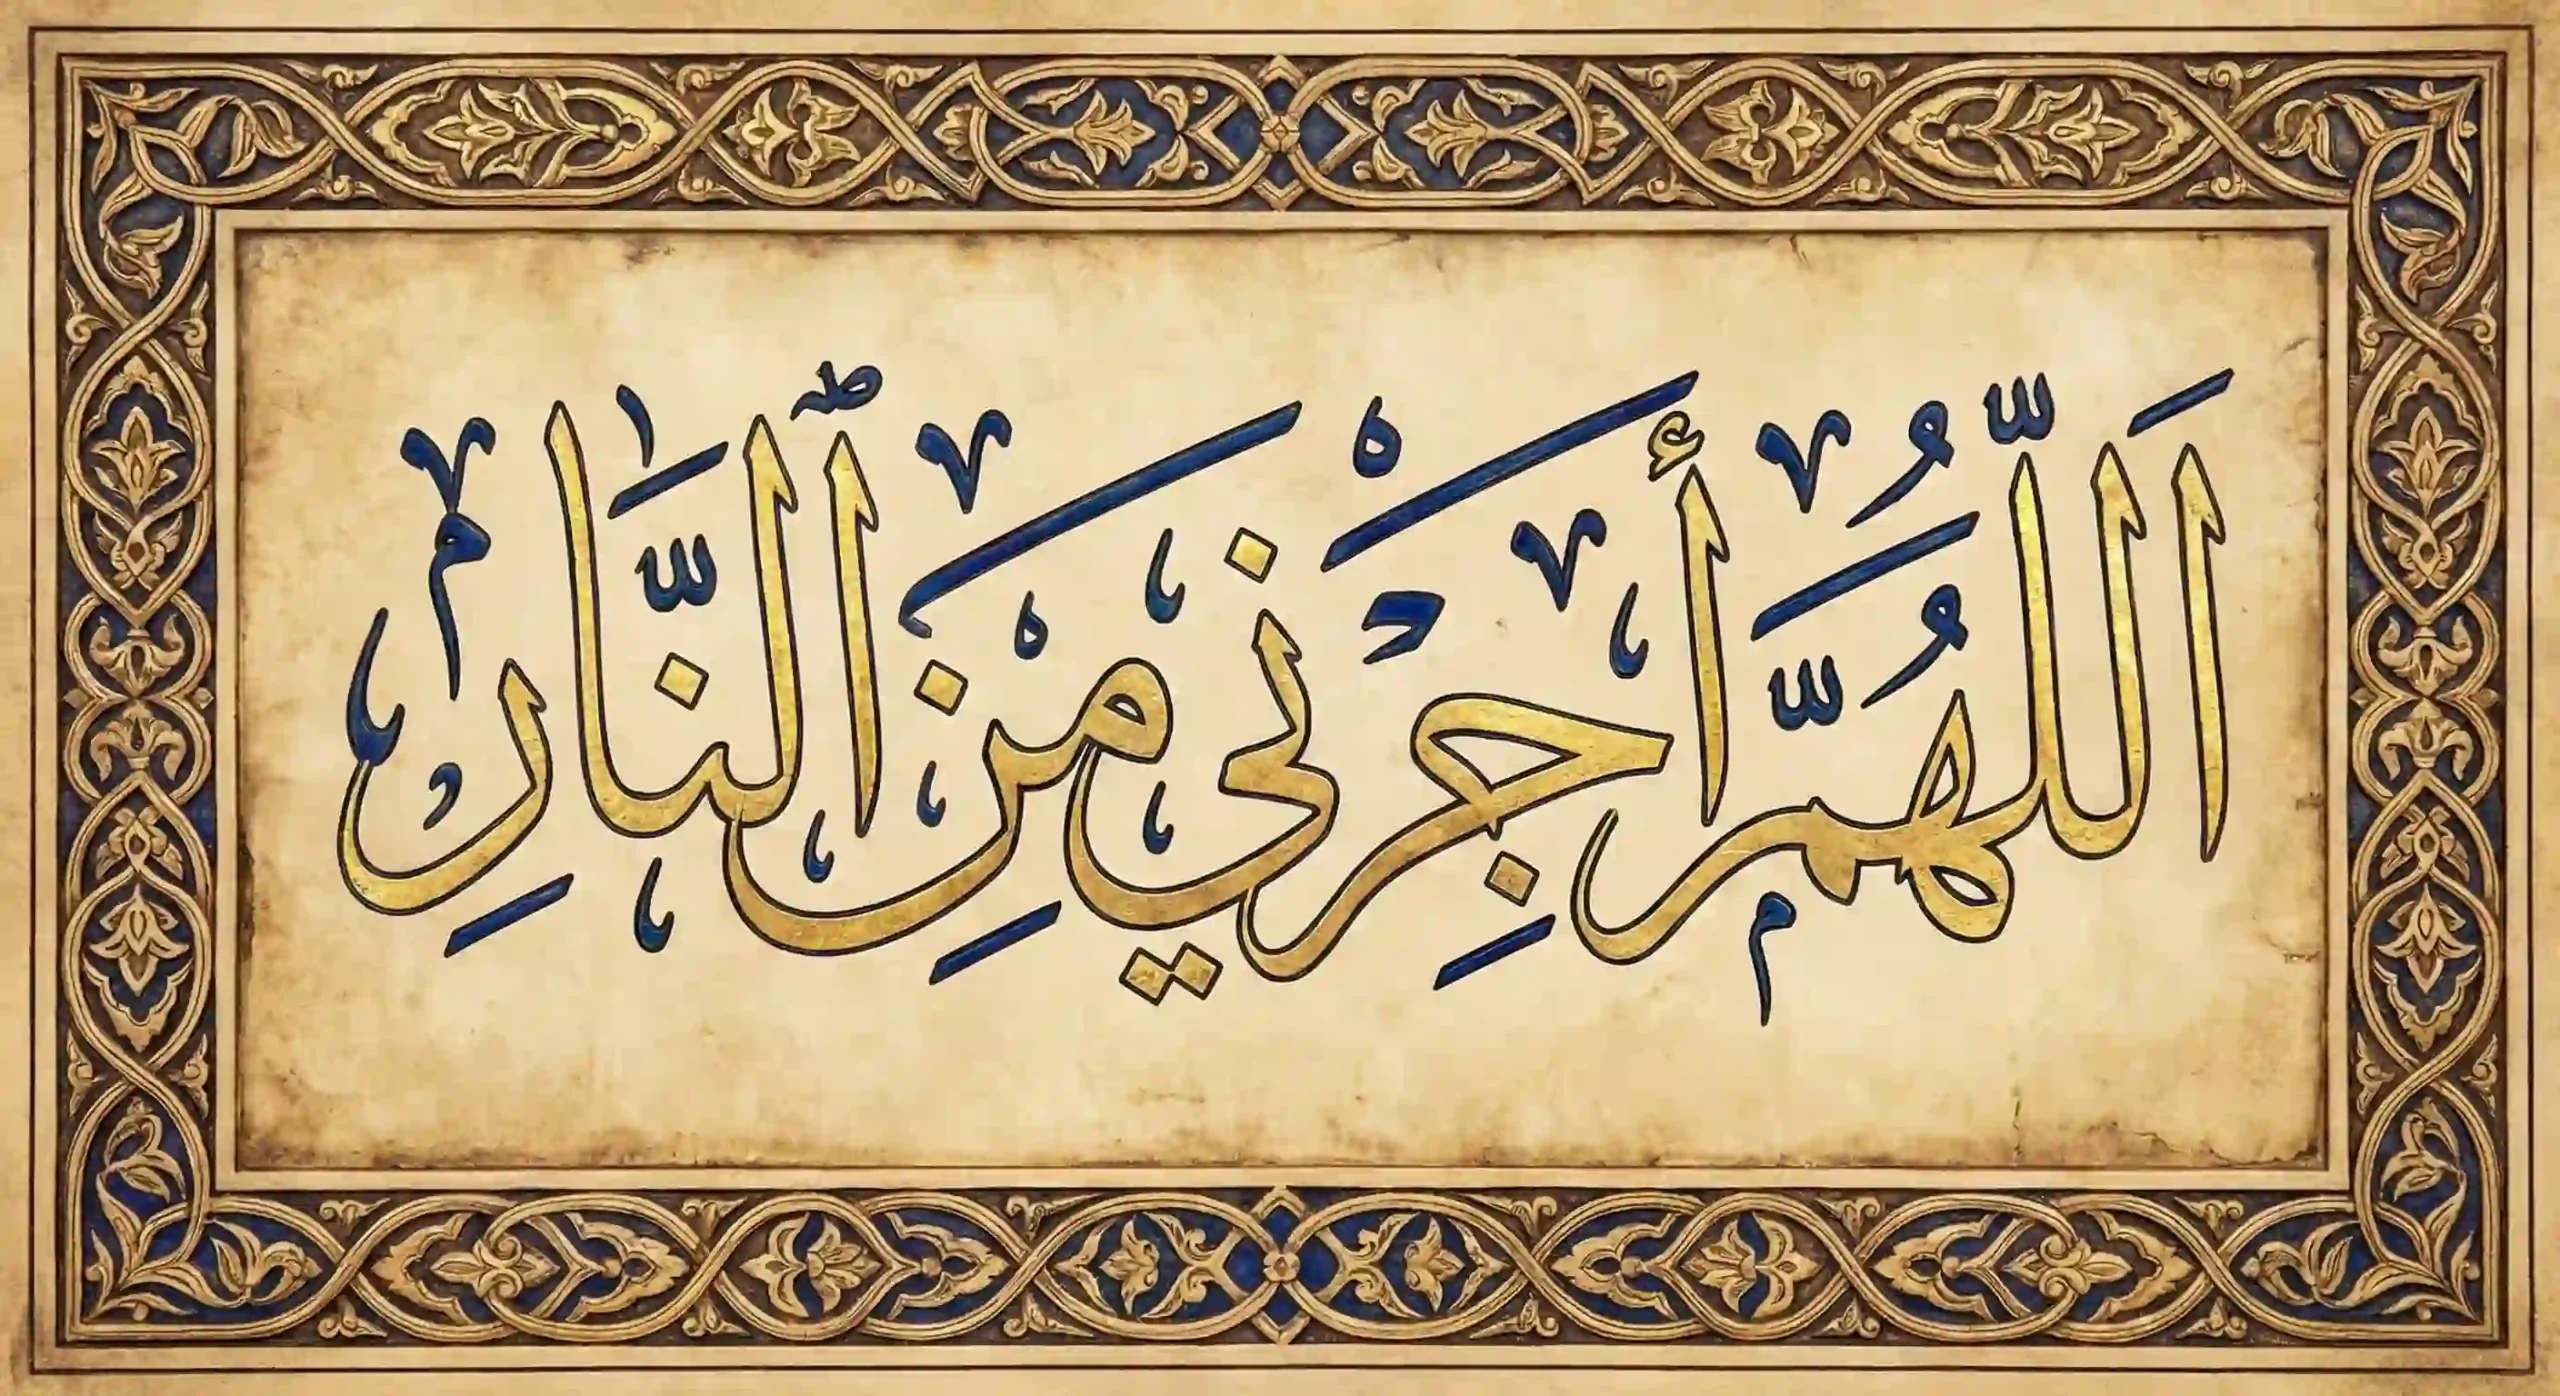 اَللّٰهُمَّ أَجِرْنِي مِنَ ٱلنَّارِ